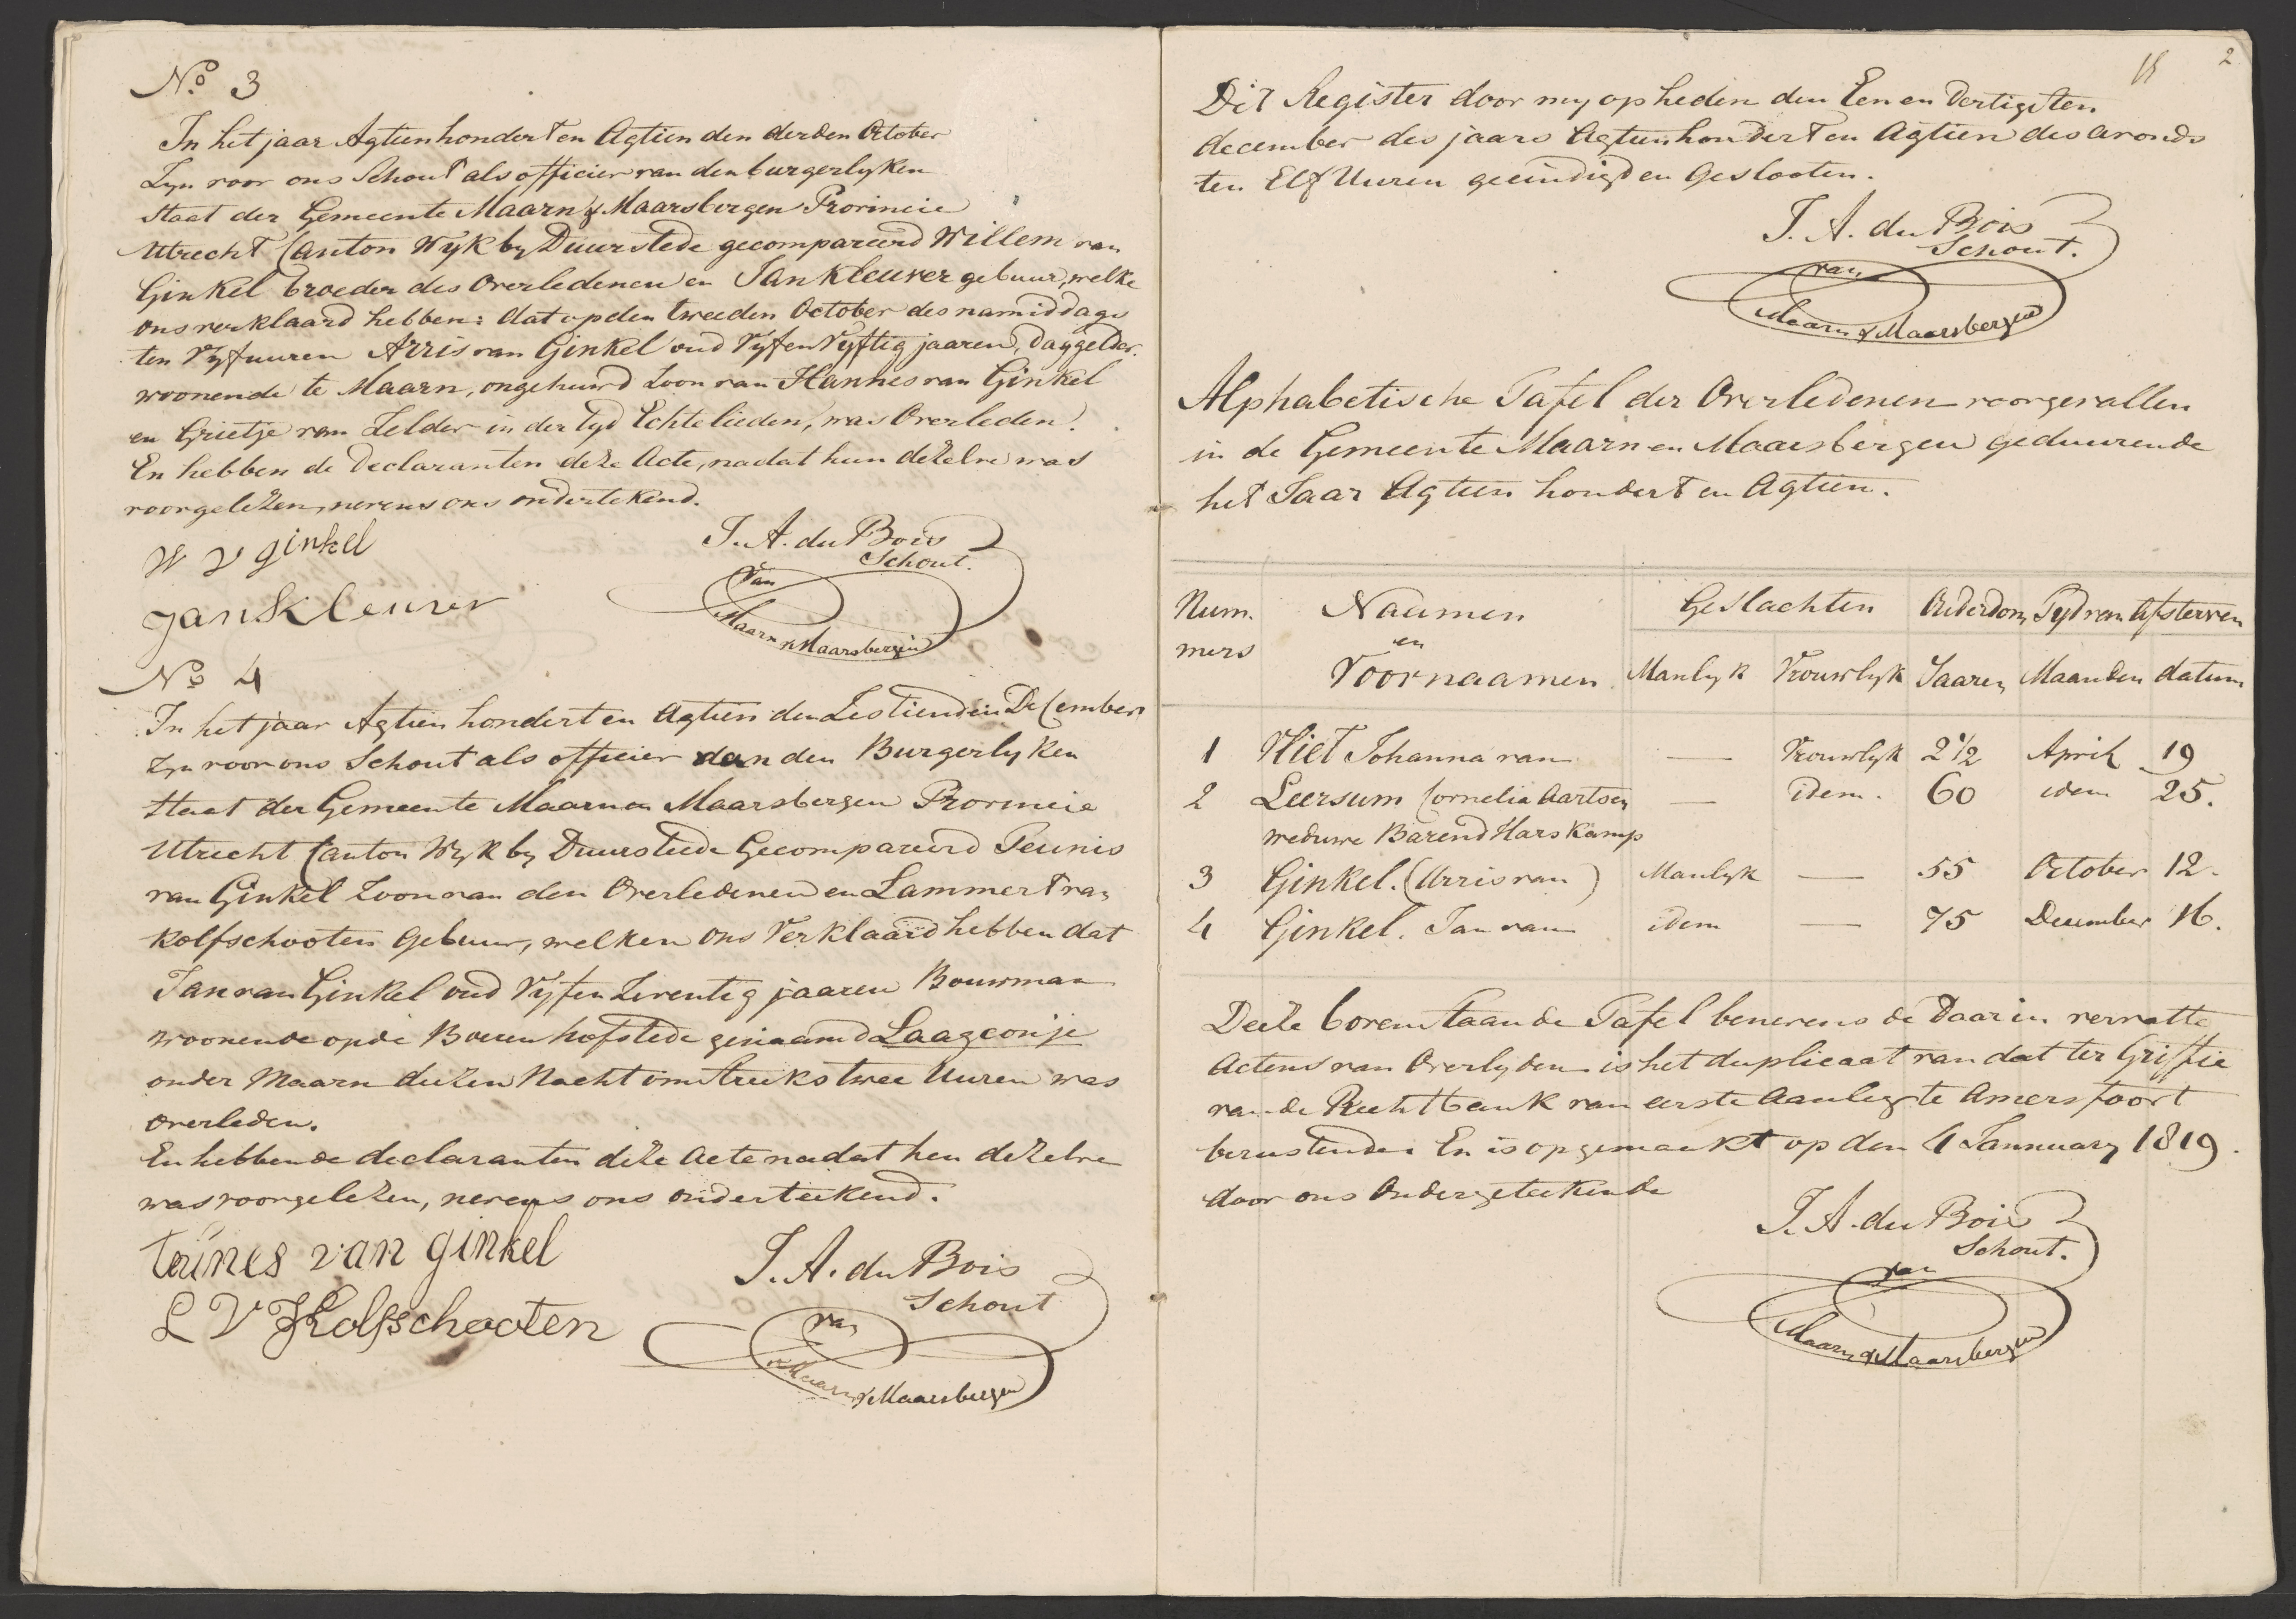 No 3
In het jaar Agtienhondert en Agtien den derden October
Zyn voor ons Schout als officier van den burgerlyken
Staat der Gemeente Maarn & Maarsbergen Provincie
Utrecht Canton Wyk by Duurstede gecompareerd Willem van
Ginkel broeder des Overledenen en Jan Kleuver gebuur, welke
ons verklaard hebben: dat op den tweeden October des namiddags
ten Vyf uuren Arris van Ginkel oud Vyf en Vyftig jaaren, daggelder.
woonende te Maarn, ongehuwd Zoon van Hannes van Ginkel
en Grietje van Zelder in der tyd Echtelieden, was Overleden.
En hebben de Declaranten deze Acte, nadat hun dezelve was
voorgelezen, nevens ons ondertekend.
W V ginkel
Jan Kleuver
J. A. du Bois
Schout.
Van
Maarn & Maarsbergen
No 4
In het jaar Agtien hondert en Agtien den Zestienden December
Zyn voor ons Schout als officier van den Burgerlyken
Staat der Gemeente Maarn en Maarsbergen Provincie
Utrecht Canton Wyk by Duurstede Gecompareerd Teunis
van Ginkel Zoon van den Overledenen en Lammert van
Kolfschooten Gebuur, welken ons Verklaard hebben dat
Jan van Ginkel oud Vyf en Zeventig jaaren Bouwman
woonende op de Boeren hofstede genaamd Laageonje
onder Maarn deezen Nacht omstreeks twee Uuren was
overleden.
En hebben de declaranten deze Acte nadat hen dezelve
was voorgelezen, nevens ons onderteekend.
teunes van ginkel
L V Kolfschooten
J. A. du Bois
Schout
van
Maarn & Maarsbergen
18 2
Dit Register door my op heden den Een en Dertigsten
december des jaars Agtienhondert en Agtien des avonds
ten Elf Uuren geeindigd en Geslooten.
J. A. du Bois
Schout.
van
Maarn & Maarsbergen
Alphabetische Tafel der Overledenen voorgevallen
in de Gemeente Maarn en Maarsbergen geduurende
het Jaar Agtien hondert en Agtien.
Num. Naamen Geslachten Ouderdom Tyd van Afsterven
mers en
Voornaamen Manlyk Vrouwlyk Jaaren Maanden datum
1 Vliet Johanna van — Vrouwlyk 2 1/2 April 19
2 Leersum Cornelia Aartsen — idem. 60 idem 25.
weduwe Barend Harskamp
3 Ginkel. (Arris van) Manlyk — 55 October 12.
4 Ginkel. Jan van idem — 75 December 16.
Deeze bovenstaande Tafel benevens de Daarin vervatte
Actens van Overlyden is het duplicaat van dat ter Griffie
van de Rechtbank van eerste Aanleg te Amersfoort
berustende. En is opgemaakt op den 4 Jannuary 1819.
door ons Ondergeteekende
J. A. du Bois
Schout.
van
Maarn & Maarsbergen